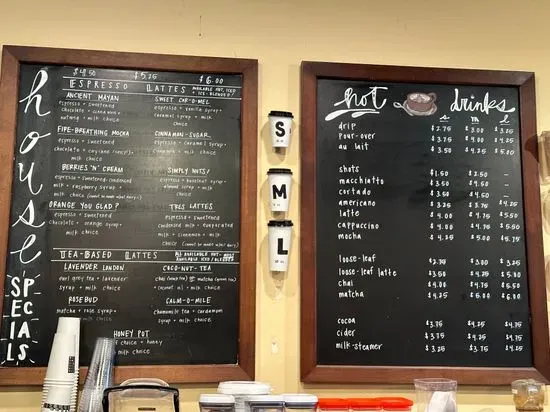 house
SPECIALS
$4.50 $5.25 $6.00
ESPRESSO LATTES
AVAILABLE HOT, ICED
+ ICE-BLENDED!
ANCIENT MAYAN
espresso + sweetened
chocolate + cinnamon +
nutmeg + milk choice
FIRE-BREATHING MOCHA
espresso + sweetened
chocolate +
milk choice
BERRIES 'N' CREAM
espresso + sweetened condensed
milk + raspberry syrup +
milk choice
ORANGE YOU GLAD?
espresso + sweetened
chocolate + orange syrup +
milk choice
SWEET CAR-O-MEL
espresso + vanilla syrup +
caramel syrup + milk
choice
CINNAMON-SUGAR
espresso + caramel syrup +
cinnamon + milk choice
SIMPLY NUTS!
espresso + hazelnut syrup +
almond syrup + milk
choice
TRES LATTES
espresso + sweetened
condensed milk + evaporated
milk + cinnamon + milk
choice
TEA-BASED LATTES
LAVENDER LONDON
earl grey tea + lavender
syrup + milk choice
ROSEBUD
matcha + rose syrup +
milk choice
COCO-NUT-TEA
chai
coconut oil + milk choice
CALM-O-MILE
chamomile tea + cardamom
syrup + milk choice
HONEY POT
choice + honey
milk choice
S
M
L
hot drinks
s m l
drip $2.75 $3.00 $3.25
pour-over $3.75 $4.00 $4.25
au lait $3.50 $4.25 $5.00
shots $1.50 $2.50 —
macchiatto $3.50 $4.50 —
cortado $3.50 $4.50 —
americano $3.25 $3.75 $4.25
latte $4.00 $4.75 $5.50
cappuccino $4.00 $4.75 $5.50
mocha $4.25 $5.00 $5.75
loose-leaf $2.75 $3.00 $3.25
loose-leaf latte $3.50 $4.25 $5.00
chai $4.00 $4.75 $5.50
matcha $4.25 $5.00 $6.00
cocoa $3.75 $4.25 $4.75
cider $3.75 $4.25 $4.75
milk-steamer $3.25 $3.75 $4.25